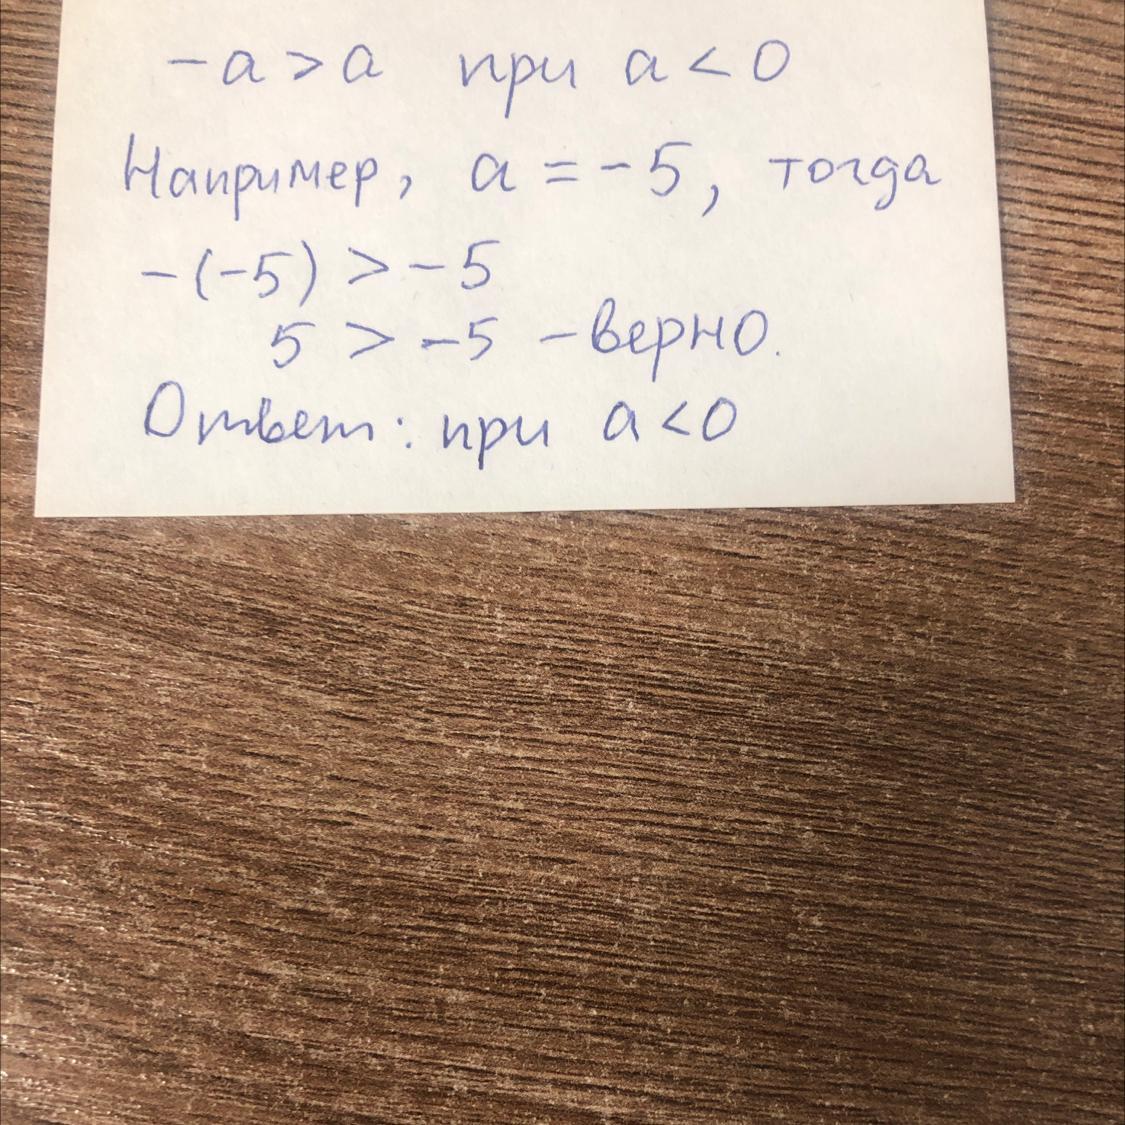 -a > a при a < 0
Например, a = -5, тогда
-(-5) > -5
5 > -5 - верно.
Ответ: при a < 0